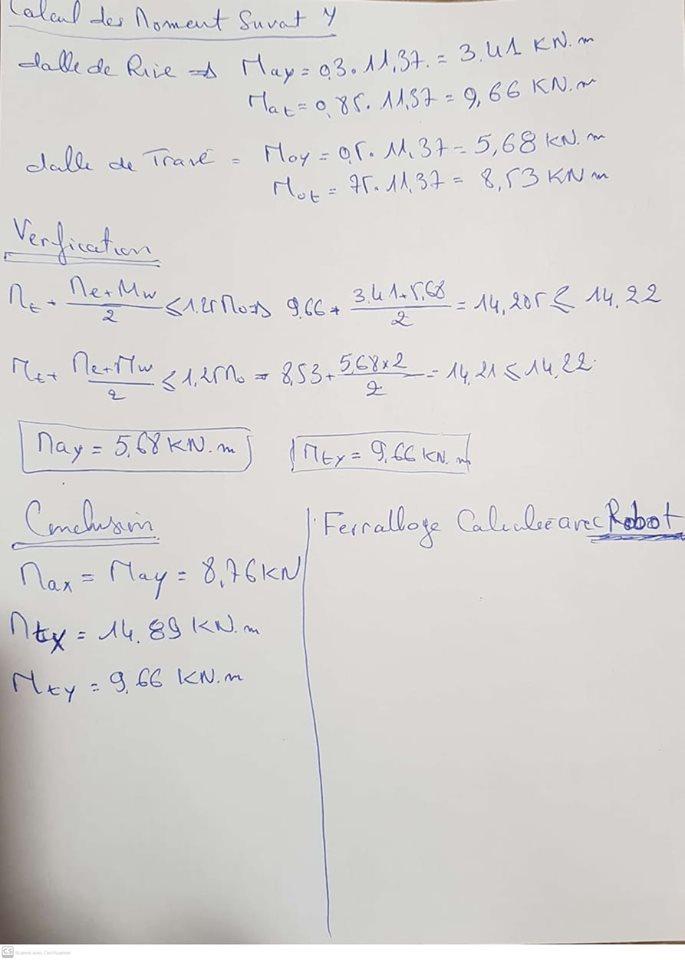 Calcul des Moment Suvat Y
dalle de Rive => May = 0,3 . 11,37. = 3.41 KN.m
Mat = 0,85 . 11,37 = 9,66 KN.m
dalle de Travé = Moy = 0,5 . 11,37 = 5,68 KN.m
Mot = 75 . 11,37 = 8,53 KN m
Verfication
Mt + (Me+Mw)/2 ≤ 1.25 M0 => 9.66 + (3.41+5.68)/2 = 14,205 ≤ 14,22
Mt + (Me+Mw)/2 ≤ 1,25 M0 = 8,53 + (5,68x2)/2 = 14,21 ≤ 14,22.
May = 5,68 KN.m
Mty = 9,66 KN.m
Conclusion
Max = May = 8,76 KN
Mtx = 14.89 KN.m
Mty = 9.66 KN.m
Ferralloge Calculée avec Robot
CS Scanné avec CamScanner